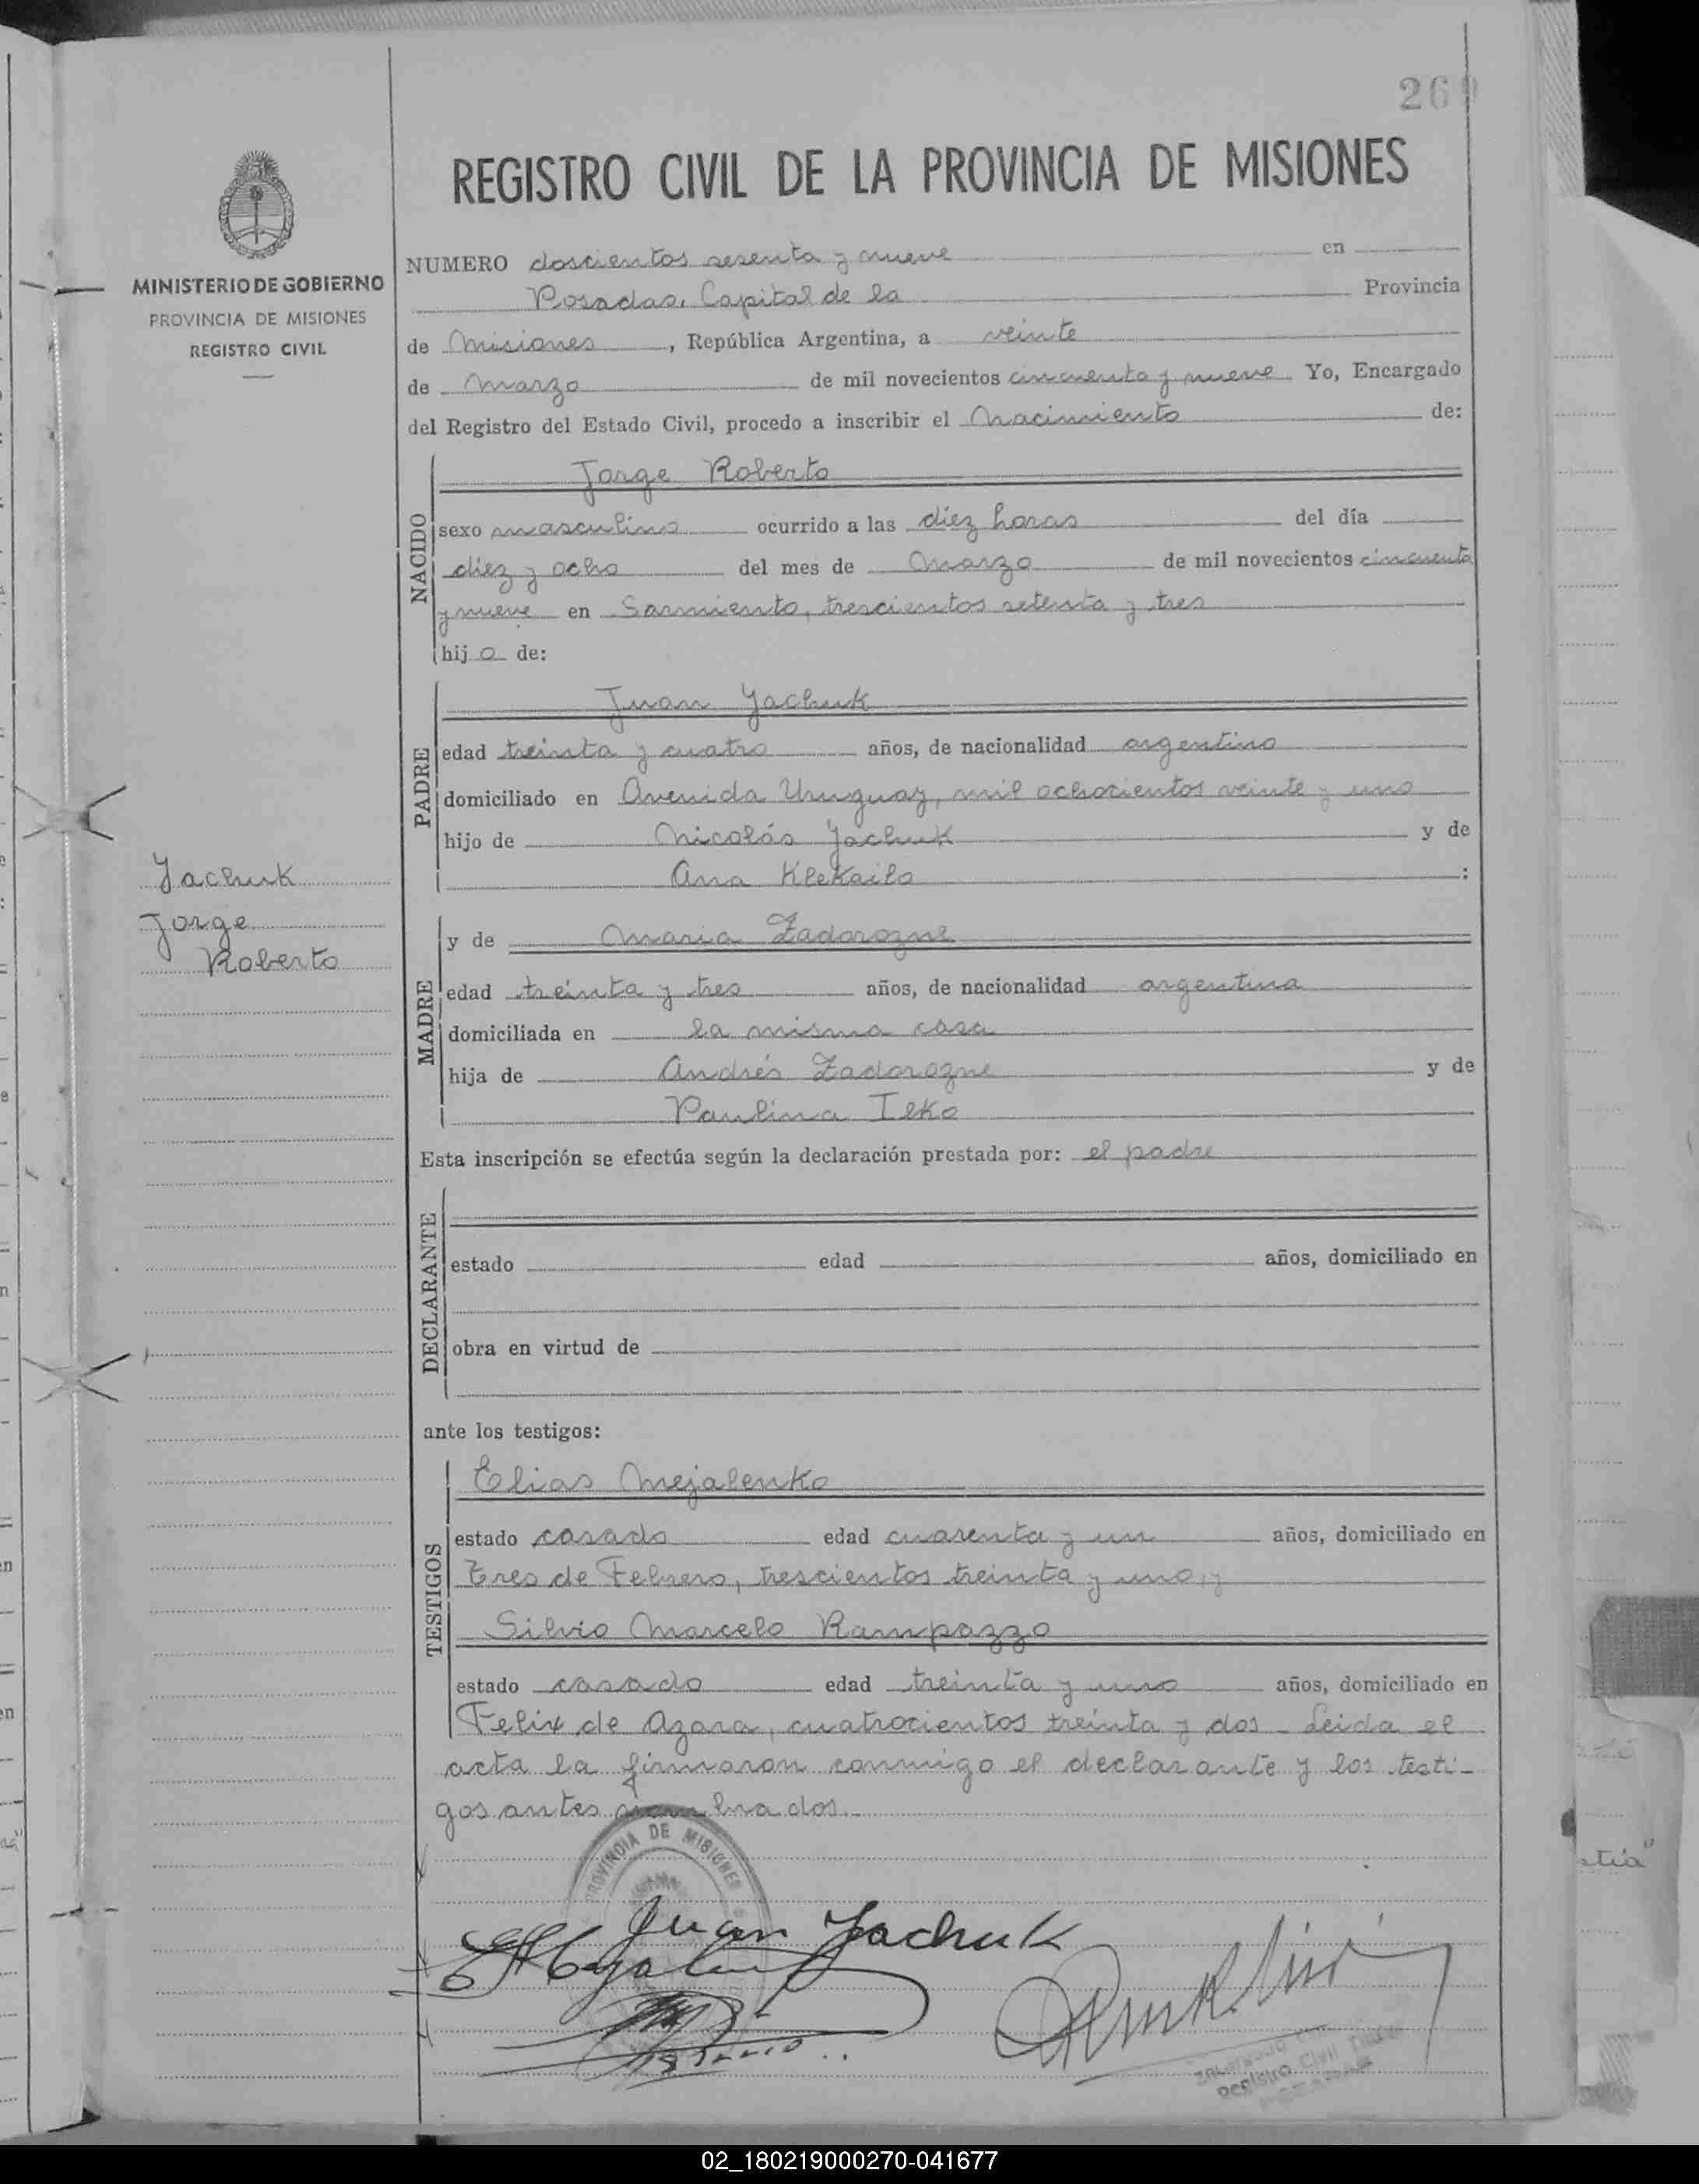 269
REGISTRO CIVIL DE LA PROVINCIA DE MISIONES
MINISTERIO DE GOBIERNO
PROVINCIA DE MISIONES
REGISTRO CIVIL
NUMERO doscientos sesenta y nueve en
Posadas, Capital de la Provincia
de Misiones, República Argentina, a veinte
de Marzo de mil novecientos cincuenta y nueve Yo, Encargado
del Registro del Estado Civil, procedo a inscribir el Nacimiento de:
NACIDO
Jorge Roberto
sexo masculino ocurrido a las diez horas del día
diez y ocho del mes de Marzo de mil novecientos cincuenta
y nueve en Sarmiento, trescientos setenta y tres
hijo de:
PADRE
Juan Jachuk
edad treinta y cuatro años, de nacionalidad argentino
domiciliado en Avenida Uruguay, mil ochocientos veinte y uno
hijo de Nicolás Jachuk y de
Ana Klekailo :
Jachuk
Jorge
Roberto
MADRE
y de Maria Zadorozne
edad treinta y tres años, de nacionalidad argentina
domiciliada en la misma casa
hija de Andrés Zadorozne y de
Paulina Ilko
Esta inscripción se efectúa según la declaración prestada por: el padre
DECLARANTE
estado edad años, domiciliado en
obra en virtud de
ante los testigos:
TESTIGOS
Elias Mejalenko
estado casado edad cuarenta y un años, domiciliado en
Tres de Febrero, trescientos treinta y uno, y
Silvio Marcelo Rampazzo
estado casado edad treinta y uno años, domiciliado en
Felix de Azara, cuatrocientos treinta y dos - Leida el
acta la firmaron conmigo el declarante y los testi-
gos antes nombrados.-
PROVINCIA DE MISIONES
Juan Jachuk
Registro Civil
02_180219000270-041677